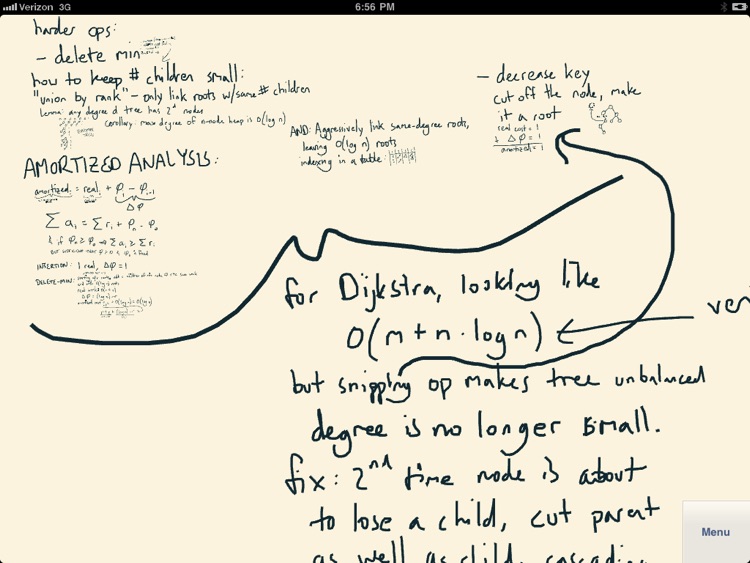 Verizon 3G
6:56 PM
harder ops:
- delete min
how to keep # children small:
"union by rank" - only link roots w/same # children
Lemma: any degree d tree has 2^d nodes
Corollary: max degree of n-node heap is O(log n)
AND: Aggressively link same-degree roots,
leaving O(log n) roots
indexing in a table:
- decrease key
cut off the node, make
it a root
real cost = 1
+ Δφ = 1
amortized = 1
AMORTIZED ANALYSIS:
amortized_i = real_i + φ_i - φ_i-1
Δφ
Σ a_i = Σ r_i + φ_n - φ_0
& if φ_n ≥ φ_0 ⇒ Σ a_i ≥ Σ r_i
INSERTION: 1 real, Δφ = 1
DELETE-MIN:
for Dijkstra, looking like
O(m + n · log n)
but snipping op makes tree unbalanced
degree is no longer small.
fix: 2nd time node is about
to lose a child, cut parent
as well as child, cascading
Menu